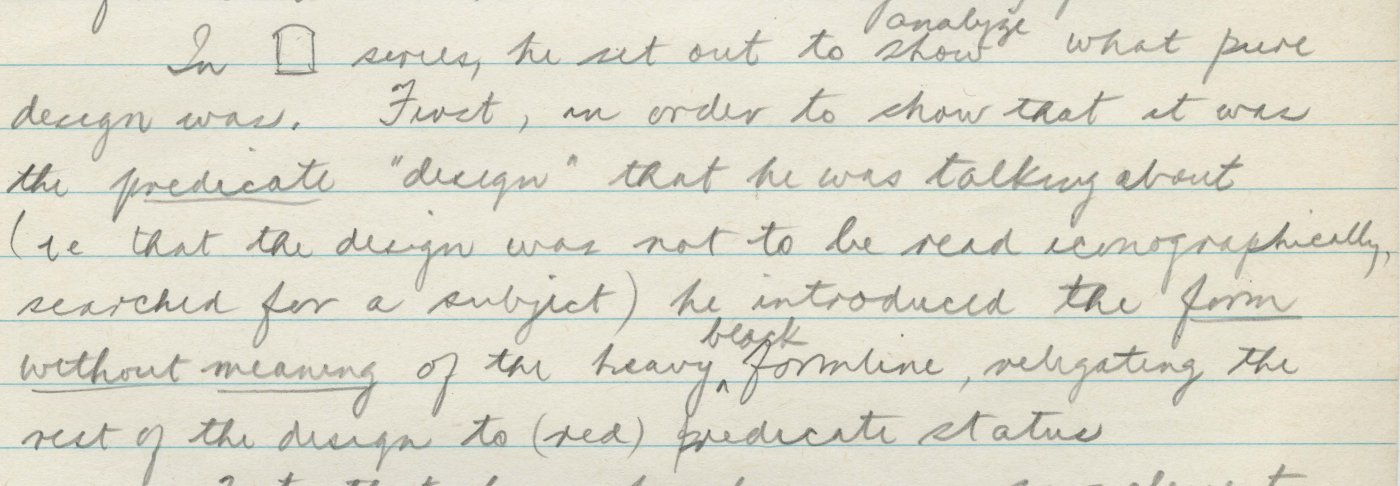 analyze
In series, he set out to show what pure
design was. First, in order to show that it was
the predicate "design" that he was talking about
(ie that the design was not to be read iconographically,
searched for a subject) he introduced the form
black
without meaning of the heavy ‸ formline, relegating the
rest of the design to (red) predicate status